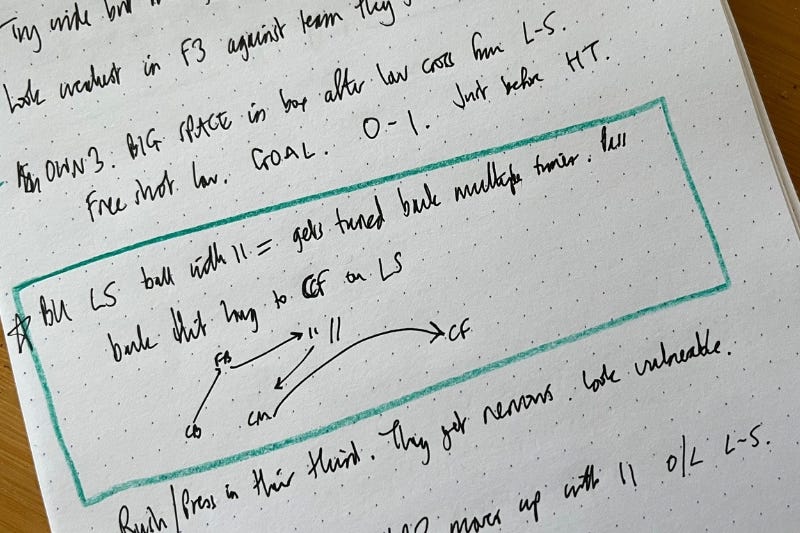 Try wide but
Look weakest in F3 against team they
OWN 3. BIG SPACE in box after low cross from L-S.
Free shot low. GOAL. 0-1. Just before HT.
BU LS ball with 11 = gets turned back multiple times.
back hit long to CF on LS
FB 11 11 CF
CB CM
Rush/Press in their third. They get nervous. Look vulnerable.
moves up with 11 O/L L-S.